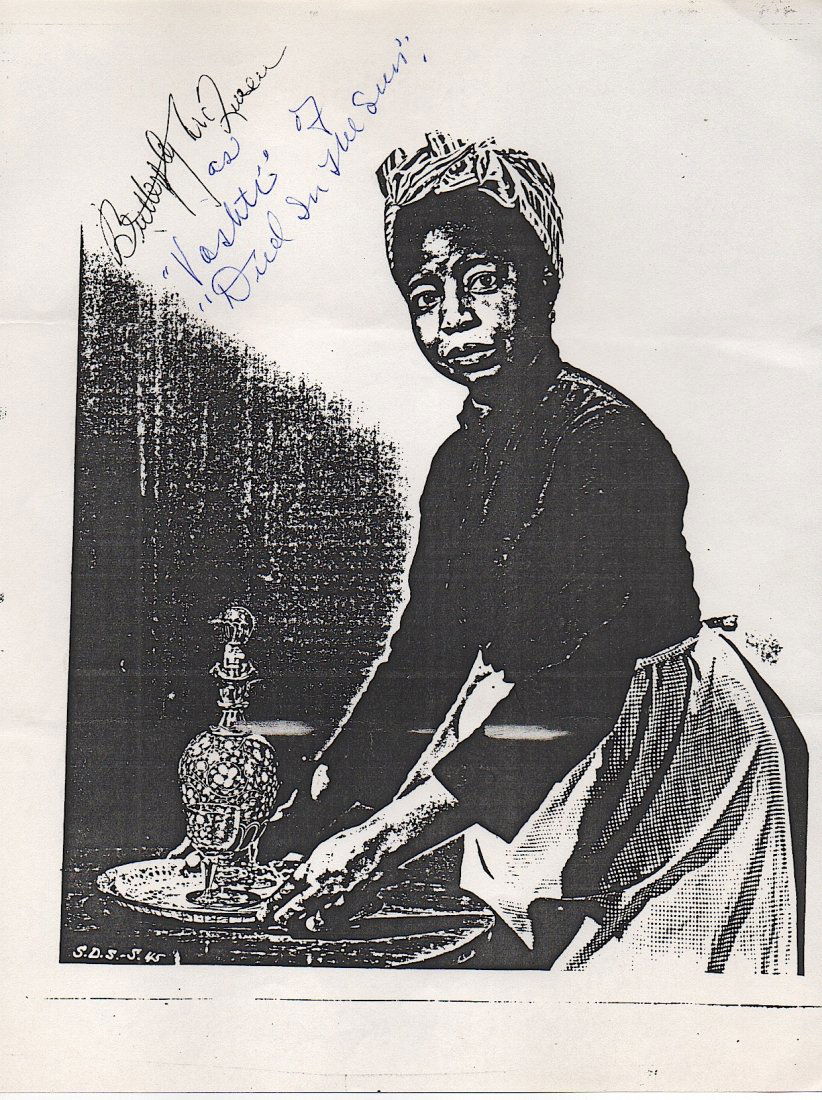 Butterfly McQueen
as
"Vashti" of
"Duel In The Sun".
S.D.S.-S.45